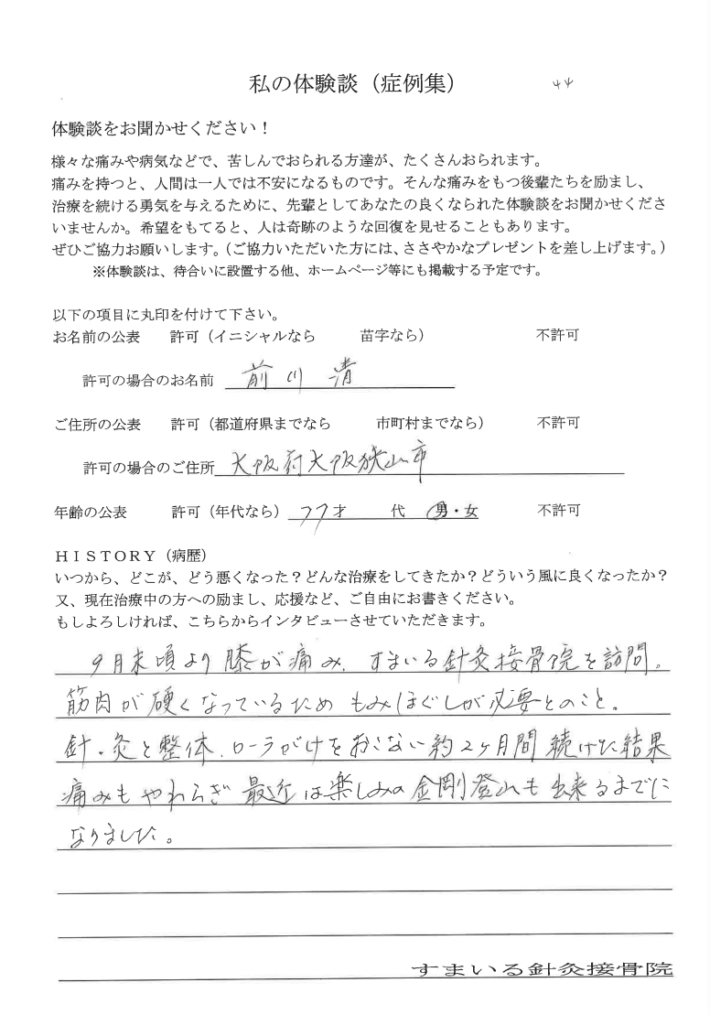 私の体験談（症例集） 44
体験談をお聞かせください！
様々な痛みや病気などで、苦しんでおられる方達が、たくさんおられます。
痛みを持つと、人間は一人では不安になるものです。そんな痛みをもつ後輩たちを励まし、
治療を続ける勇気を与えるために、先輩としてあなたの良くなられた体験談をお聞かせくださ
いませんか。希望をもてると、人は奇跡のような回復を見せることもあります。
ぜひご協力お願いします。（ご協力いただいた方には、ささやかなプレゼントを差し上げます。）
※体験談は、待合いに設置する他、ホームページ等にも掲載する予定です。
以下の項目に丸印を付けて下さい。
お名前の公表 許可（イニシャルなら 苗字なら） 不許可
許可の場合のお名前 前川 清
ご住所の公表 許可（都道府県までなら 市町村までなら） 不許可
許可の場合のご住所 大阪府大阪狭山市
年齢の公表 許可（年代なら） 77才 代 男・女 不許可
ＨＩＳＴＯＲＹ（病歴）
いつから、どこが、どう悪くなった？どんな治療をしてきたか？どういう風に良くなったか？
又、現在治療中の方への励まし、応援など、ご自由にお書きください。
もしよろしければ、こちらからインタビューさせていただきます。
9月末頃より膝が痛み、すまいる針灸接骨院を訪問。
筋肉が硬くなっているため もみほぐしが必要とのこと。
針・灸と整体、ローラがけをおこない約2ヶ月間続けた結果
痛みもやわらぎ 最近は楽しみの金剛登山も出来るまでに
なりました。
すまいる針灸接骨院